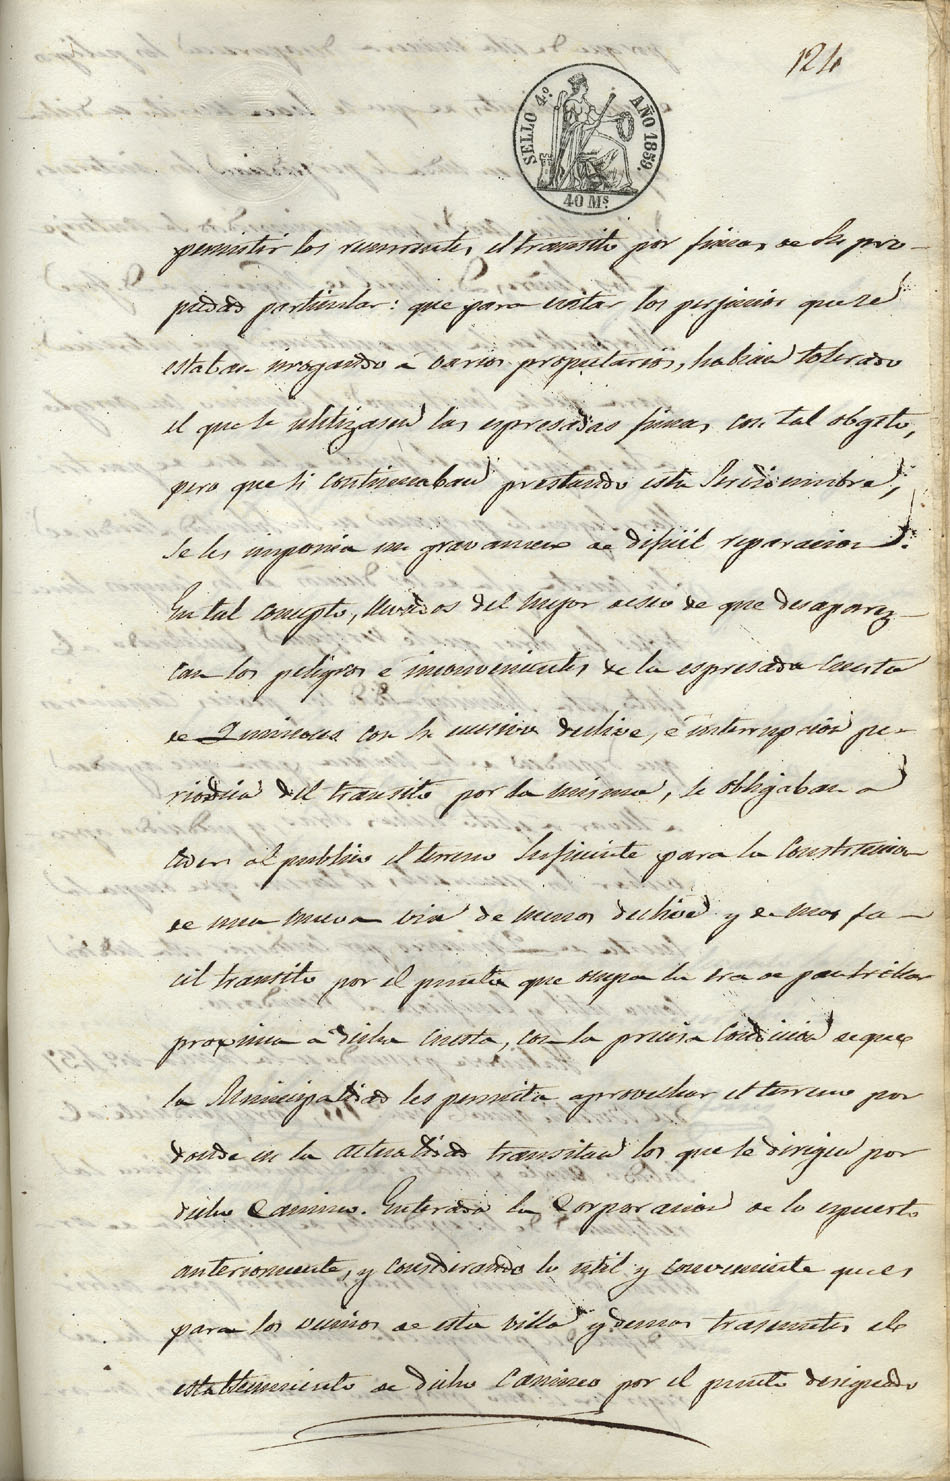 124
SELLO 4.º AÑO 1859.
40 Ms.
permitir los recurrentes, el transito por fincas de su pro-
piedad particular: que para evitar los perjuicios que se
estaban irrogando á varios propietarios, habian tolerado
el que se utilizasen las espresadas fincas, con tal obgeto,
pero que si continuaban prestando esta servidumbre,
se les imponia un gravamen de dificil reparacion.
En tal concepto, movidos del mejor deseo de que desaparez-
can los peligros é inconvenientes de la espresada cuesta
de con su escesivo declive, é interrupcion pe-
riodica del transito por la misma, se obligaban a
ceder al publico el terreno suficiente para la construccion
de una nueva via de menos declive y de mas fa-
cil transito por el punto que ocupa la era de pan trillar
proxima a dicha cuesta, con la precisa condicion de que
la Municipalidad les permita aprovechar el terreno por
donde en la actualidad transitan los que se dirigen por
dicho Camino. Enterada la Corporacion de lo espuesto
anteriormente, y considerando lo util y conveniente que es
para los vecinos de esta villa y demas transeuntes el
establecimiento de dicho Camino por el punto designado